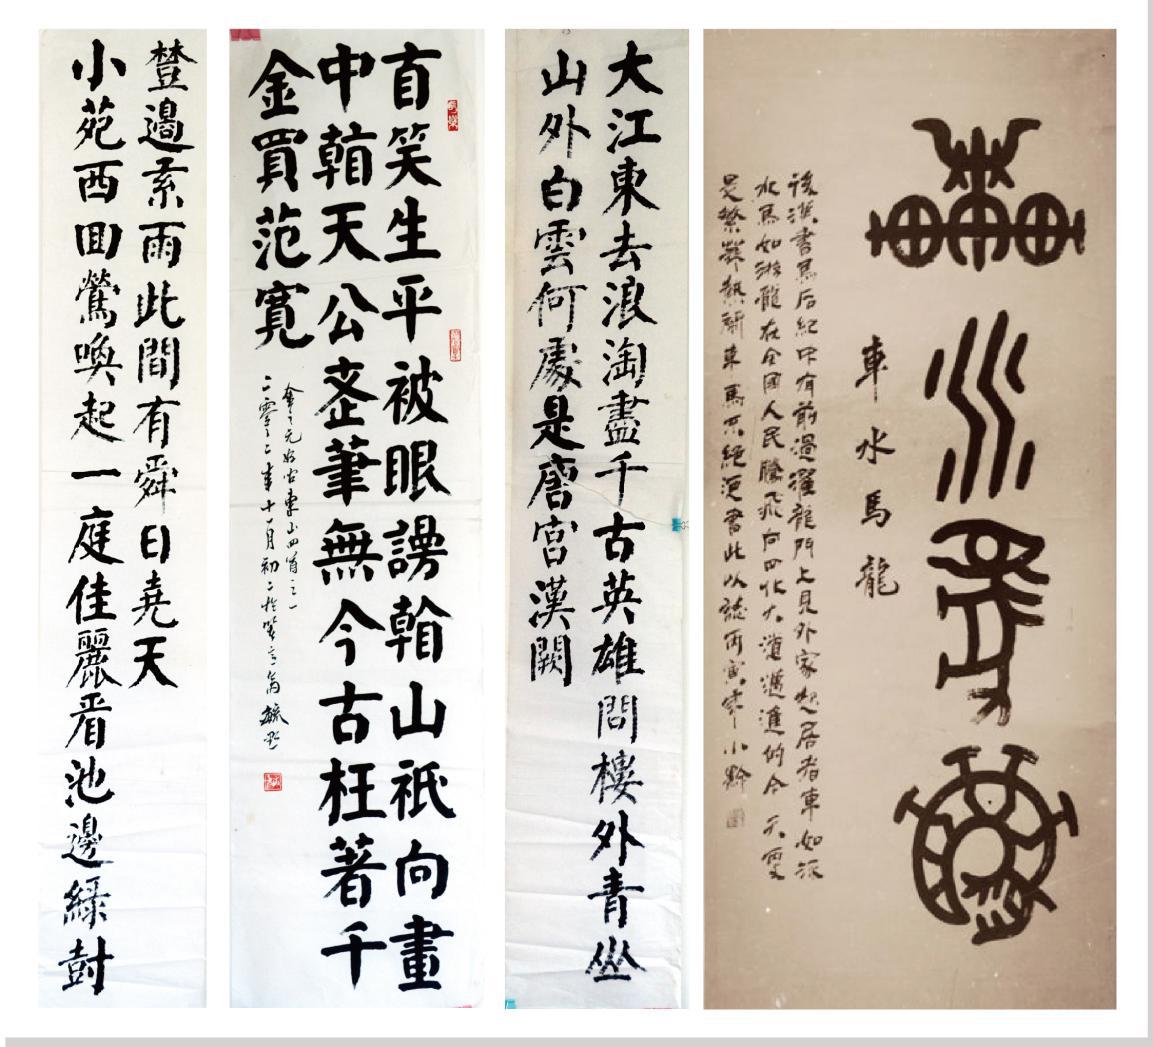 車水馬龍
車水馬龍
後漢書馬后紀中有前過濯龍門上見外家起居者車如流
水馬如游龍在全國人民騰飛向四化大道邁進的今天更
是繁榮熱鬧車馬不絕更書此以誌丙寅年小黔
大江東去浪淘盡千古英雄問樓外青山
山外白雲何處是唐宮漢闕
自笑生平被眼謾看山祇向畫
中看天公老筆無今古枉著千
金買范寬
金元好問東山四首之一
年十一月初二於笑言齋毓黔
小苑西回鶯喚起一庭佳麗看池邊綠樹
樹邊紅雨此間有舜日堯天